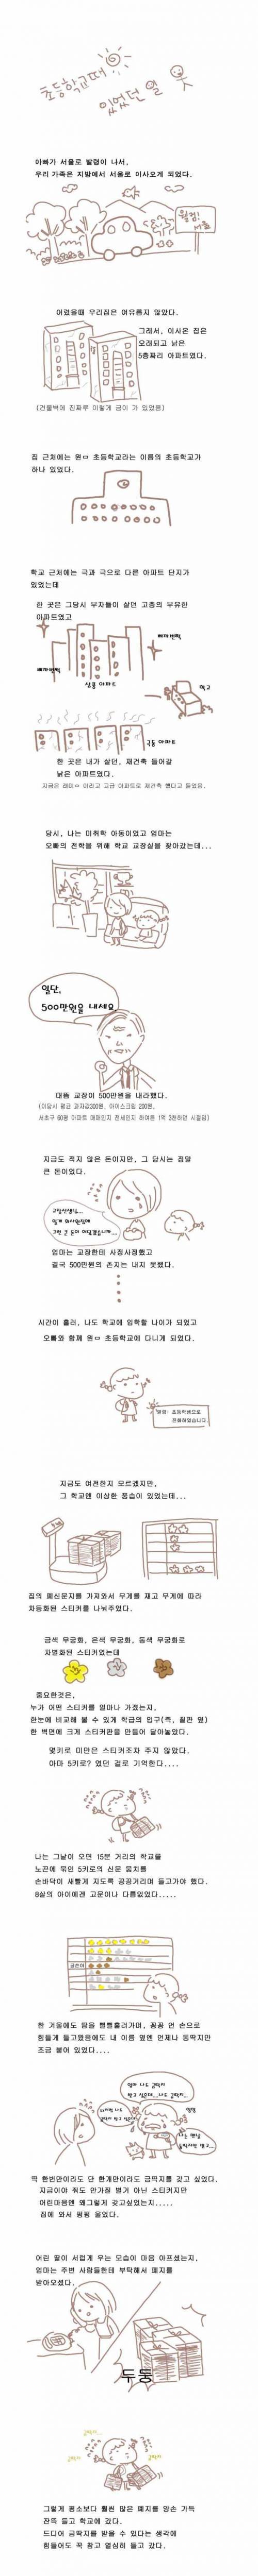 초등학교때
있었던 일
아빠가 서울로 발령이 나서,
우리 가족은 지방에서 서울로 이사오게 되었다.
웰컴!
서울
어렸을때 우리집은 여유롭지 않았다.
그래서, 이사온 집은
오래되고 낡은
5층짜리 아파트였다.
(건물벽에 진짜루 이렇게 금이 가 있었음)
집 근처에는 원ㅁ 초등학교라는 이름의 초등학교가
하나 있었다.
학교 근처에는 극과 극으로 다른 아파트 단지가
있었는데
한 곳은 그당시 부자들이 살던 고층의 부유한
아파트였고
삐까번쩍
삐까번쩍
학교
한 곳은 내가 살던, 재건축 들어갈
낡은 아파트였다.
지금은 래미ㅇ 이라고 고급 아파트로 재건축 했다고 들었음.
당시, 나는 미취학 아동이었고 엄마는
오빠의 전학을 위해 학교 교장실을 찾아갔는데...
일단,
500만원을 내세요
대뜸 교장이 500만원을 내라했다.
(이당시 평균 과자값300원, 아이스크림 200원,
서초구 60평 아파트 매매인지 전세인지 하여튼 1억 3천하던 시절임)
지금도 적지 않은 돈이지만, 그 당시는 정말
큰 돈이였다.
교장선생님...
엄마는 교장한테 사정사정했고
결국 500만원의 촌지는 내지 못했다.
시간이 흘러, 나도 학교에 입학할 나이가 되었고
오빠와 함께 원ㅁ 초등학교에 다니게 되었다.
초등학생으로
진화하였습니다
지금도 여전한지 모르겠지만,
그 학교엔 이상한 풍습이 있었는데...
집의 폐신문지를 가져와서 무게를 재고 무게에 따라
차등화된 스티커를 나눠주었다.
금색 무궁화, 은색 무궁화, 동색 무궁화로
차별화된 스티커였는데
중요한것은,
누가 어떤 스티커를 얼마나 가졌는지,
한눈에 비교해 볼 수 있게 학급의 입구(즉, 칠판 옆)
한 벽면에 크게 스티커판을 만들어 달아놓았다.
몇키로 미만은 스티커조차 주지 않았다.
아마 5키로? 였던 걸로 기억한다....
나는 그날이 오면 15분 거리의 학교를
노끈에 묶인 5키로의 신문 뭉치를
손바닥이 새빨게 지도록 끙끙거리며 들고가야 했다.
8살의 아이에겐 고문이나 다름없었다.....
글쓴이
한 겨울에도 땀을 뻘뻘흘려가며, 꽁꽁 언 손으로
힘들게 들고왔음에도 내 이름 옆엔 언제나 동딱지만
조금 붙어 있었다....
엄마 나도 금딱지
받고 싶은데...나도 금딱지...
엉엉
딱 한번만이라도 단 한개만이라도 금딱지를 갖고 싶었다.
지금이야 줘도 안가질 별거 아닌 스티커지만
어린마음엔 왜그렇게 갖고싶었는지.....
집에 와서 펑펑 울었다.
어린 딸이 서럽게 우는 모습이 마음 아프셨는지,
엄마는 주변 사람들한테 부탁해서 폐지를
받아오셨다.
두둥
금딱지...
금딱지
금딱지
그렇게 평소보다 훨씬 많은 폐지를 양손 가득
잔뜩 들고 학교에 갔다.
드디어 금딱지를 받을 수 있다는 생각에
힘들어도 꾹 참고 열심히 들고 갔다.